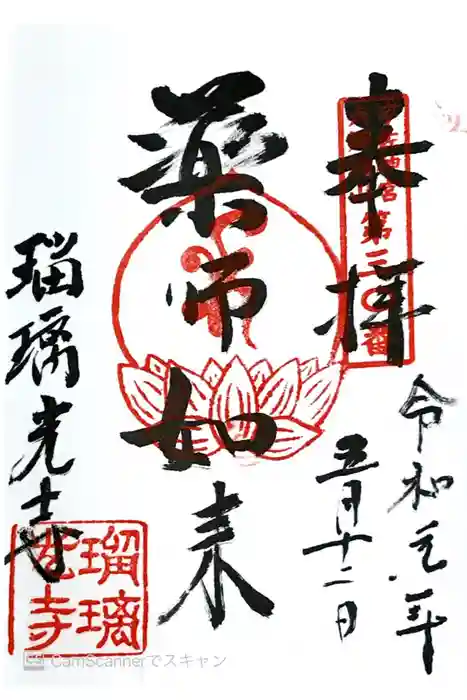 奉拝
第三〇番
令和元年
五月十二日
薬師如来
瑠璃光寺
瑠璃光寺
CS CamScannerでスキャン